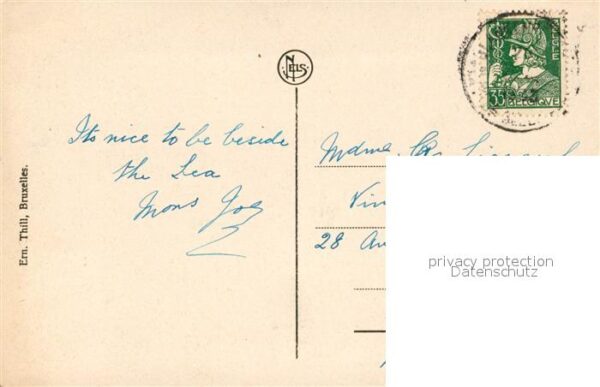 NELS
35
BELGIQUE
BELGIE
Its nice to be beside
the Sea
Mons Joe
Mdme
28 Av
privacy protection
Datenschutz
Ern. Thill, Bruxelles.